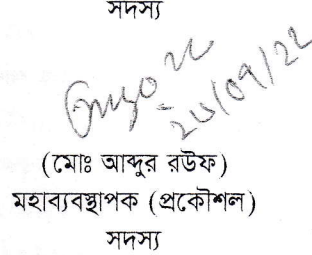 সদস্য
(মোঃ আব্দুর রউফ)
মহাব্যবস্থাপক (প্রকৌশল)
সদস্য